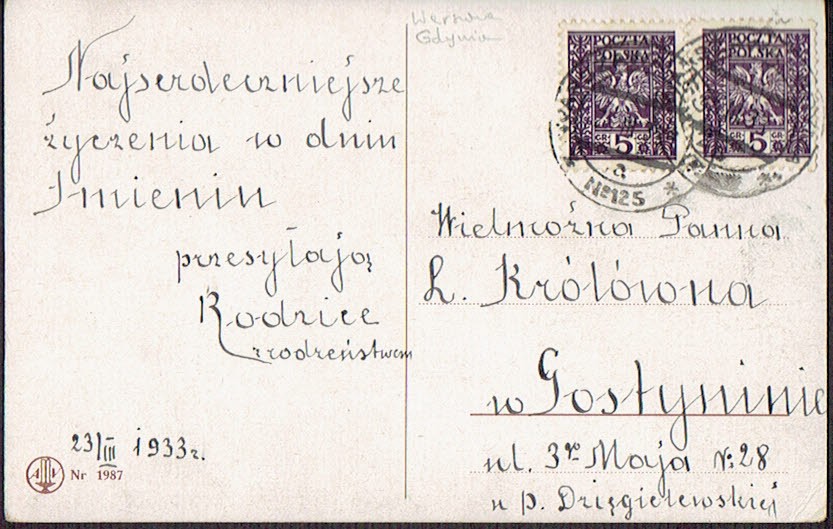 Najserdeczniejsze
życzenia w dniu
Imienin
przesyłają
Rodzice
z rodzeństwem
23/III 1933 r.
Nr 1987
Gdynia
POCZTA
POLSKA
GR: 5 GR:
POCZTA
POLSKA
GR: 5 GR:
№125
Wielmożna Panna
L. Królówna
w Gostyninie
ul. 3go Maja №28
u p. Dzięgielewskiej